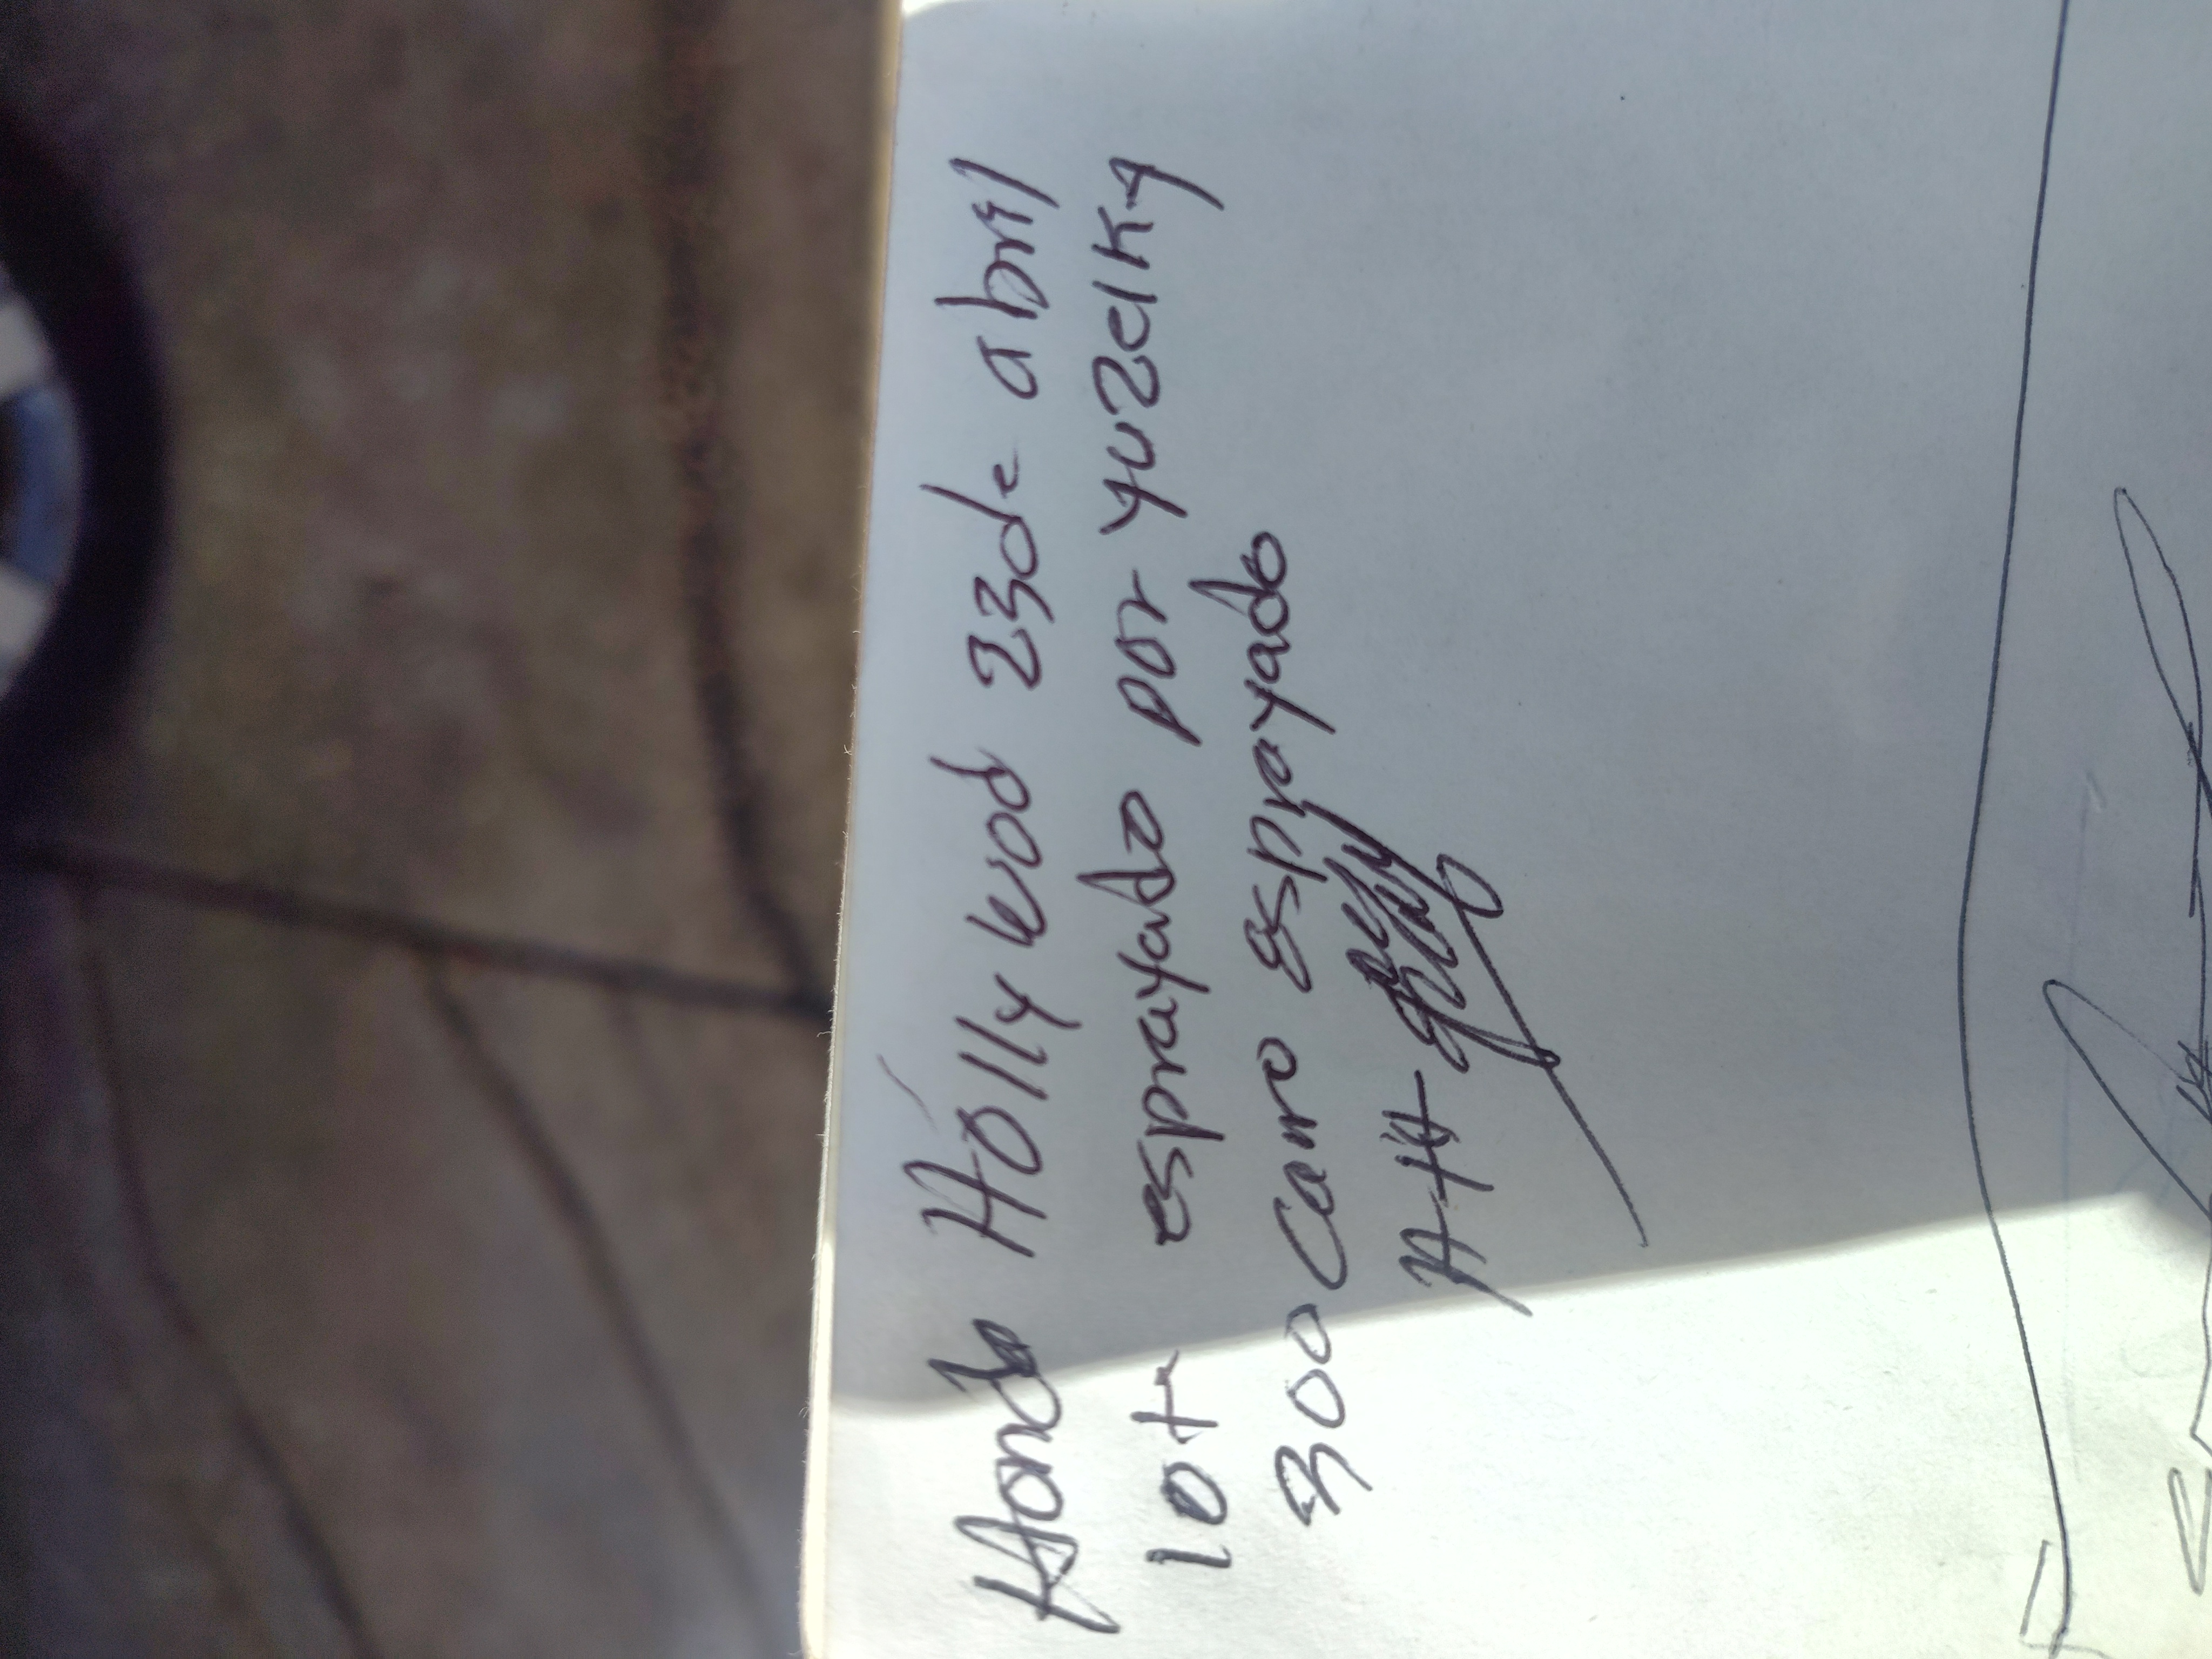 Honda Hollywod 23 de abril
lot esprayado por yuzelky
300 Carro esprayado